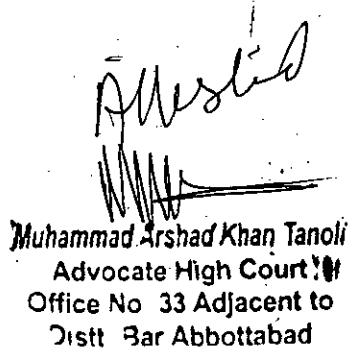 Attested
Muhammad Arshad Khan Tanoli
Advocate High Court
Office No 33 Adjacent to
Distt Bar Abbottabad